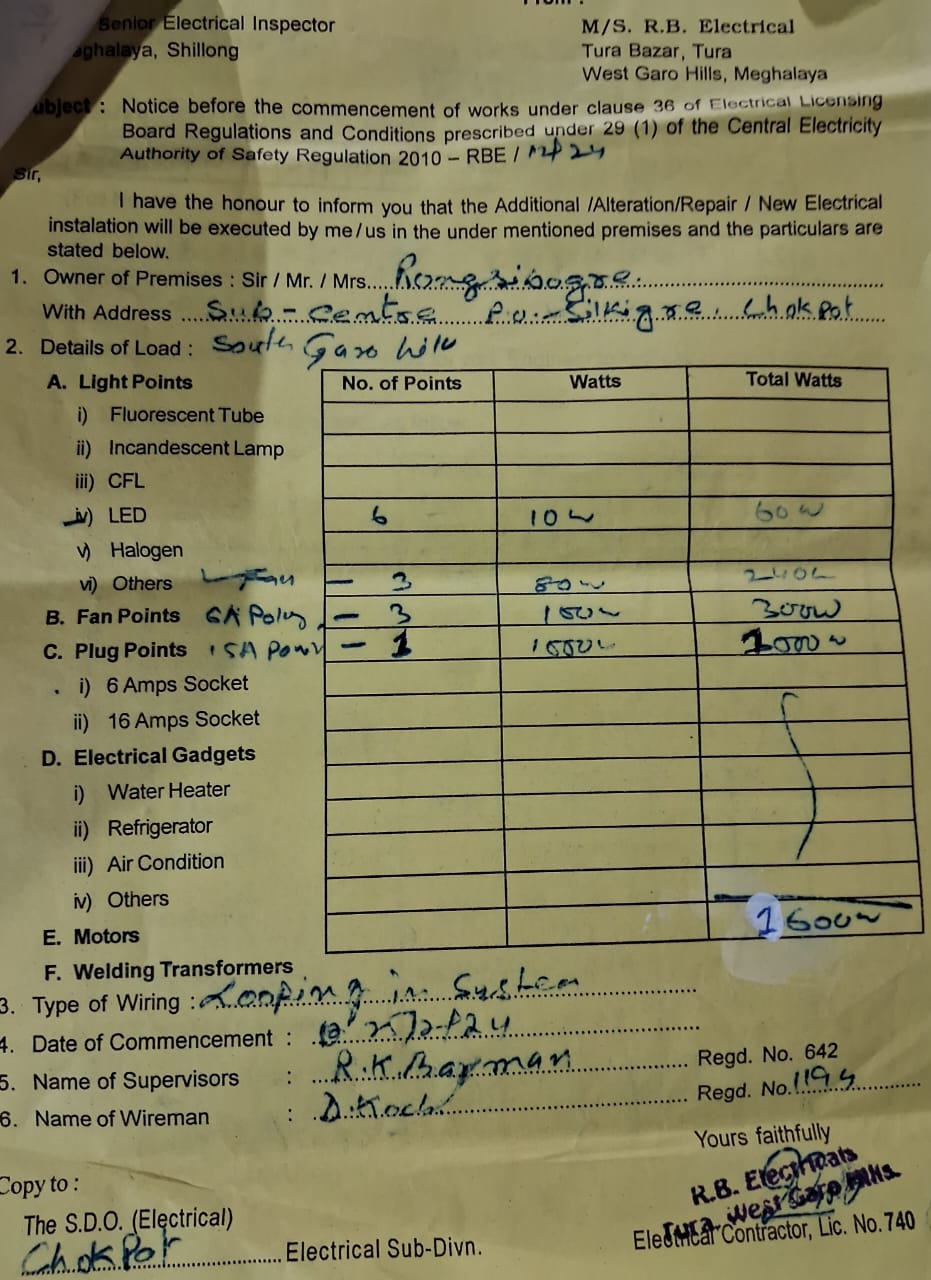 From :
Senior Electrical Inspector
M/S. R.B. Electrical
Meghalaya, Shillong
Tura Bazar, Tura
West Garo Hills, Meghalaya
Subject : Notice before the commencement of works under clause 36 of Electrical Licensing
Board Regulations and Conditions prescribed under 29 (1) of the Central Electricity
Authority of Safety Regulation 2010 – RBE /
Sir,
I have the honour to inform you that the Additional /Alteration/Repair / New Electrical
instalation will be executed by me/us in the under mentioned premises and the particulars are
stated below.
1. Owner of Premises : Sir / Mr. / Mrs..... Rongsibogre
With Address .... Sub - Centre P.o:- Silkigre, Chokpot
2. Details of Load : South Garo hills
A. Light Points No. of Points Watts Total Watts
i) Fluorescent Tube
ii) Incandescent Lamp
iii) CFL
iv) LED 6 10w 60w
v) Halogen
vi) Others Fan – 3 80w 240w
B. Fan Points 6A – 3 100w 300w
C. Plug Points 15A Power – 1 1000w 1000w
i) 6 Amps Socket
ii) 16 Amps Socket
D. Electrical Gadgets
i) Water Heater
ii) Refrigerator
iii) Air Condition
iv) Others
1600w
E. Motors
F. Welding Transformers
3. Type of Wiring : Looping in System
4. Date of Commencement :
5. Name of Supervisors : R.K. Barman Regd. No. 642
6. Name of Wireman : D. Koch Regd. No. 1194
Yours faithfully
R.B. Electricals
Tura West Garo Hills
Electrical Contractor, Lic. No. 740
Copy to :
The S.D.O. (Electrical)
Chokpot Electrical Sub-Divn.